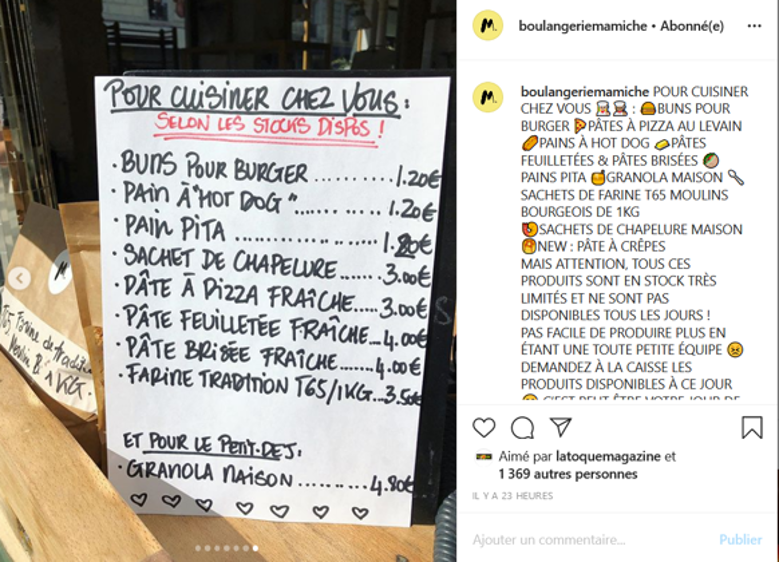 POUR CUISINER CHEZ VOUS :
SELON LES STOCKS DISPOS !
· BUNS POUR BURGER .......... 1.20€
· PAIN À "HOT DOG" .......... 1.20€
· PAIN PITA .................... 1.20€
· SACHET DE CHAPELURE ....... 3.00€
· PÂTE À PIZZA FRAÎCHE ..... 3.00€
· PÂTE FEUILLETÉE FRAÎCHE ... 4.00€
· PÂTE BRISÉE FRAÎCHE ....... 4.00€
· FARINE TRADITION T65/1KG ... 3.50€
ET POUR LE PETIT-DEJ :
· GRANOLA MAISON .......... 4.80€
M
T65 Farine de tradition
1 KG.
M.
boulangeriemamiche • Abonné(e)
M.
boulangeriemamiche POUR CUISINER
CHEZ VOUS 👩‍🍳👩‍🍳 : 🍔BUNS POUR
BURGER 🍕PÂTES À PIZZA AU LEVAIN
🥖PAINS À HOT DOG 🧈PÂTES
FEUILLETÉES & PÂTES BRISÉES 🥙
PAINS PITA 🍯GRANOLA MAISON 🥄
SACHETS DE FARINE T65 MOULINS
BOURGEOIS DE 1KG
SACHETS DE CHAPELURE MAISON
🥞NEW : PÂTE À CRÊPES
MAIS ATTENTION, TOUS CES
PRODUITS SONT EN STOCK TRÈS
LIMITÉS ET NE SONT PAS
DISPONIBLES TOUS LES JOURS !
PAS FACILE DE PRODUIRE PLUS EN
ÉTANT UNE TOUTE PETITE ÉQUIPE 😣
DEMANDEZ À LA CAISSE LES
PRODUITS DISPONIBLES À CE JOUR
C'EST PEUT-ÊTRE VOTRE JOUR DE
Aimé par latoquemagazine et
1 369 autres personnes
IL Y A 23 HEURES
Ajouter un commentaire...
Publier